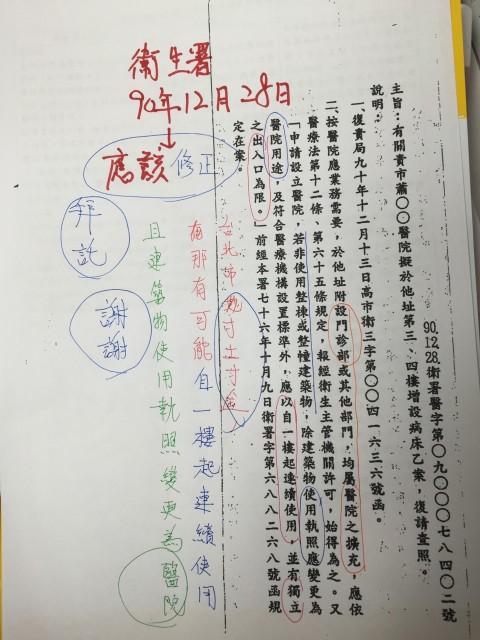 90.12.28.衛署醫字第〇九〇〇〇七八四〇二號
主旨：有關貴市蕭〇〇醫院擬於他址第三、四樓增設病床乙案，復請查照。
說明：
一、復貴局九十年十二月十三日高市衛三字第〇〇四一六三六號函。
二、按醫院應業務需要，於他址附設門診部或其他部門，均屬醫院之擴充，應依
醫療法第十二條、第六十五條規定，報經衛生主管機關許可，始得為之。又
「申請設立醫院，若非使用整棟或整幢建築物，除建築物使用執照應變更為
醫院用途，及符合醫療機構設置標準外，應以自一樓起連續使用，並有獨立
之出入口為限。」前經本署七十六年十月九日衛署字第六八八二六八號函規
定在案。
衛生署
90年12月28日
應該修正
拜託
謝謝
台北市寸土寸金
有那有可能自一樓起連續使用
且建築物使用執照變更為醫院